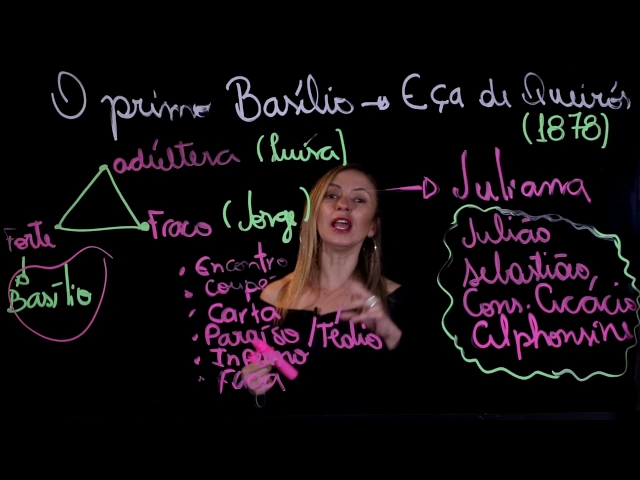 O primo Basílio → Eça de Queirós
(1878)
adúltera (Luísa)
Forte
Fraco (Jorge)
Basílio
• Encontro
• Coupé
• Carta
• Paraíso / Tédio
• Inferno
• Faca
→ Juliana
Julião
Sebastião,
Cons. Acácio
Alphonsine